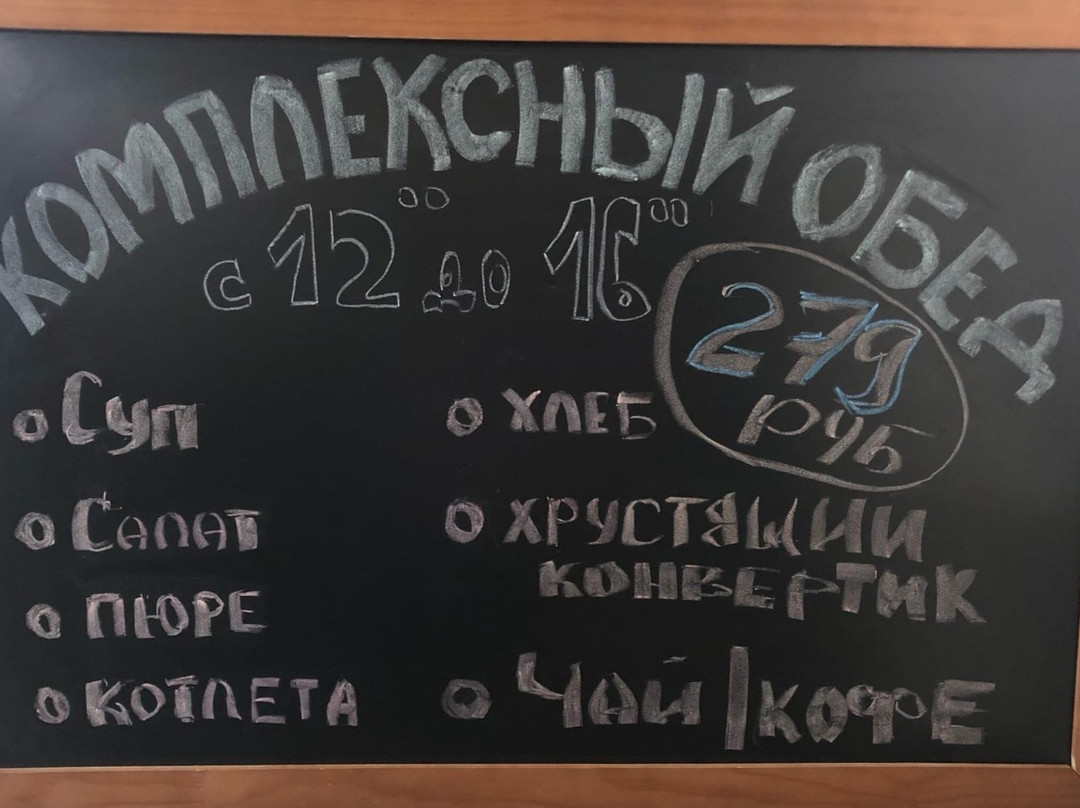 КОМПЛЕКСНЫЙ ОБЕД
с 12°° до 16°°
279
руб
о Суп
о Салат
о ПЮРЕ
о КОТЛЕТА
о ХЛЕБ
о ХРУСТЯЩИЙ
КОНВЕРТИК
о ЧАЙ | КОФЕ